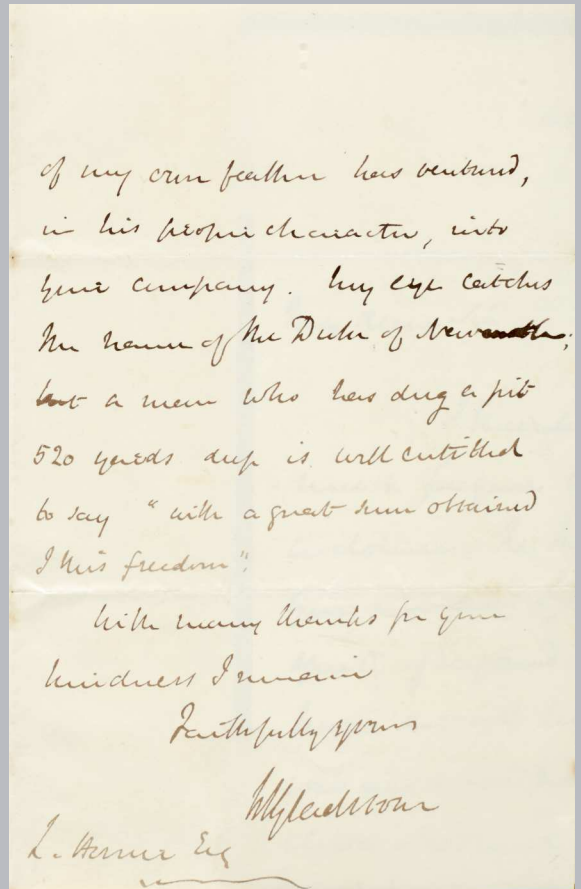 of my own feather has ventured,
in his proper character, into
your company. My eye catches
the name of the Duke of Newcastle;
but a man who has dug a pit
520 yards deep is well entitled
to say "with a great sum obtained
I this freedom".
With many thanks for your
kindness I remain
Faithfully yours
WEGladstone
L. Horner Esq